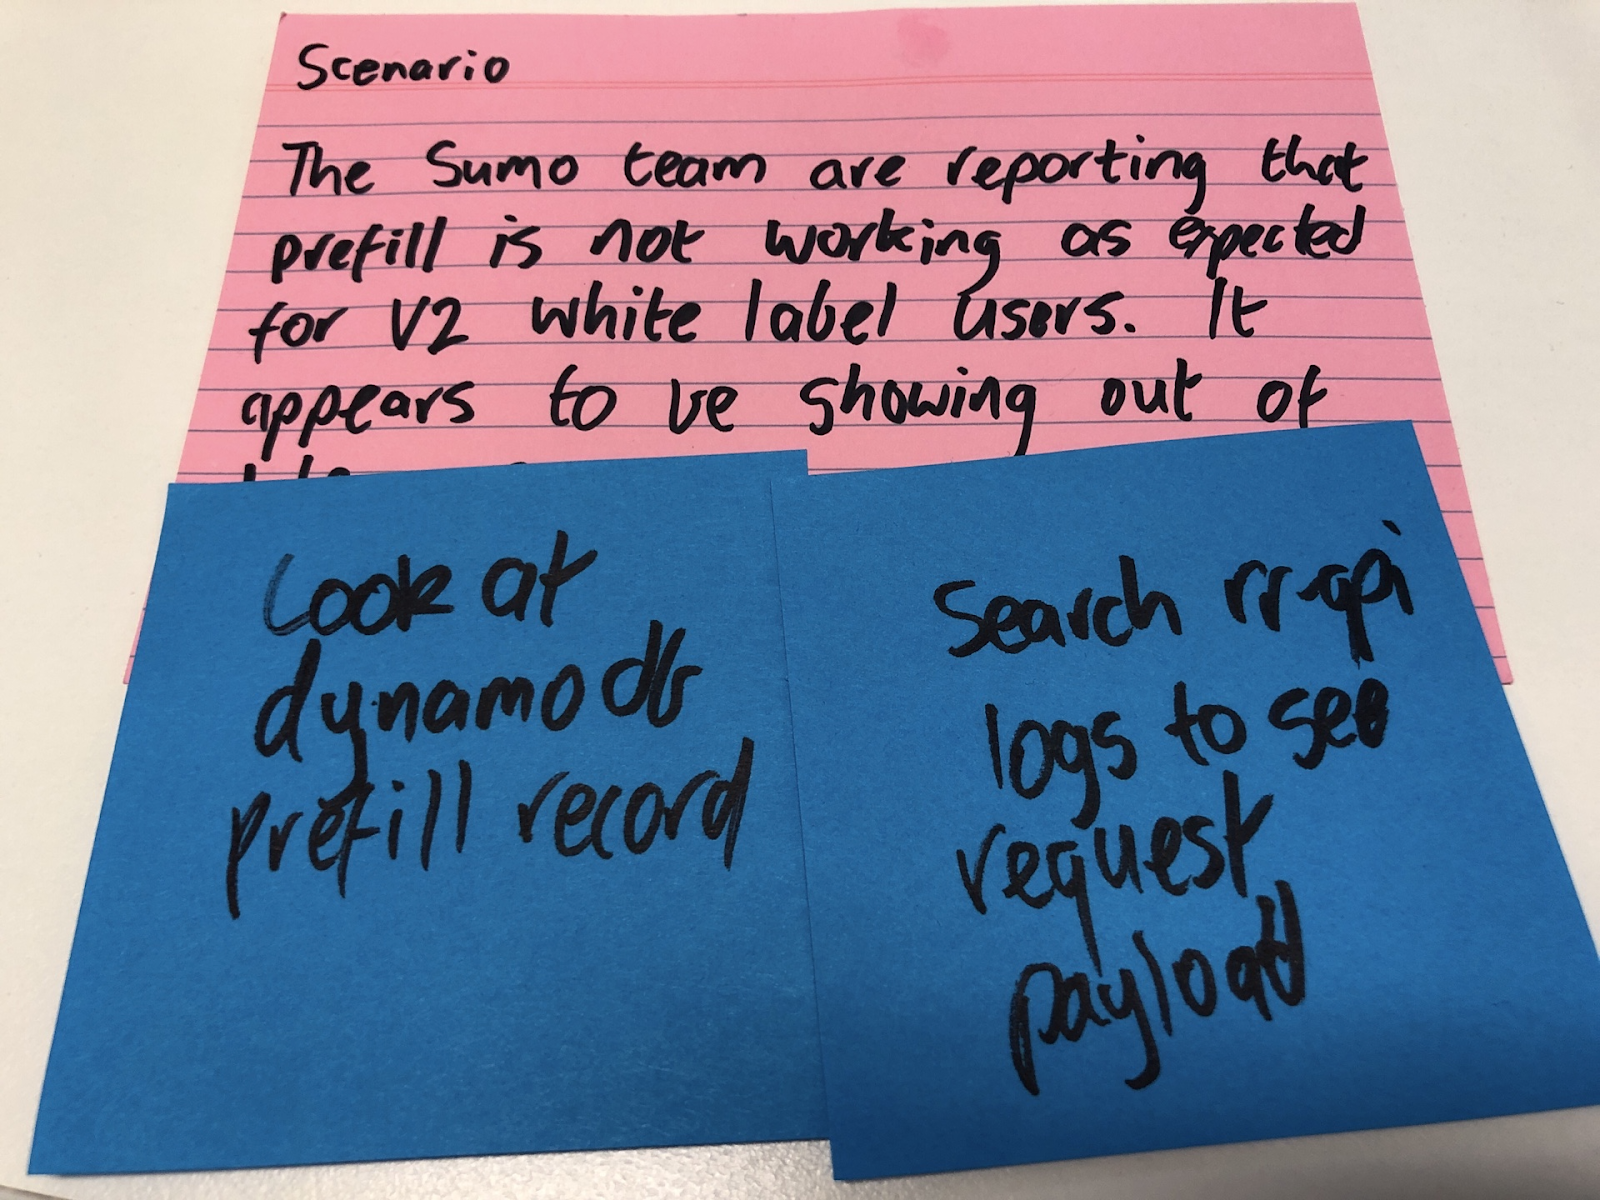 Scenario
The Sumo team are reporting that
prefill is not working as expected
for V2 white label users. It
appears to be showing out of
Look at
dynamodb
prefill record
Search rr-api
logs to see
request
payload